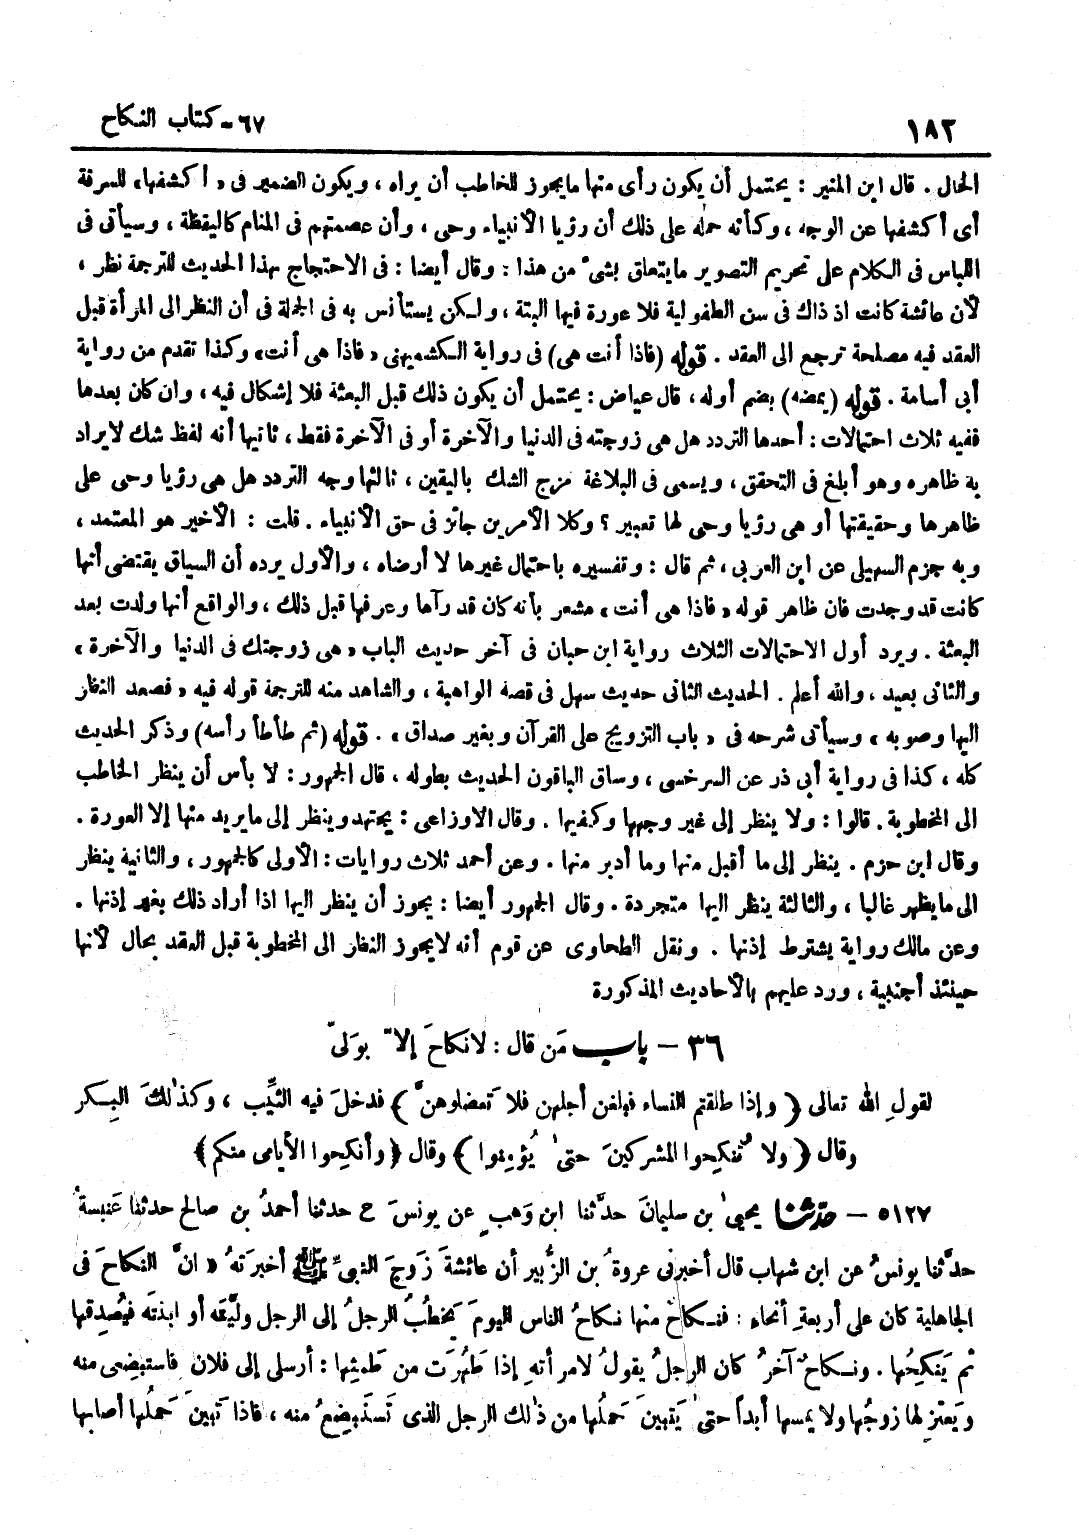 ١٨٢
٦٧ - كتاب النكاح
الحال . قال ابن المنير : يحتمل أن يكون رأى منها ما يجوز للخاطب أن يراه ، ويكون الضمير فى « أكشفها » للسرقة
أى أكشفها عن الوجه ، وكأنه حمله على ذلك أن رؤيا الأنبياء وحى ، وأن عصمتهم فى المنام كاليقظة ، وسيأتى فى
اللباس فى الكلام على تحريم التصوير ما يتعلق بشىء من هذا : وقال أيضا : فى الاحتجاج بهذا الحديث للترجمة نظر ،
لأن عائشة كانت اذ ذاك فى سن الطفولية فلا عورة فيها البتة ، ولكن يستأنس به فى الجملة فى أن النظر الى المرأة قبل
العقد فيه مصلحة ترجع الى العقد . قوله (فاذا أنت هى) فى رواية الكشميهنى « فاذا هى أنت » وكذا تقدم من رواية
أبى أسامة . قوله (يمضه) بضم أوله ، قال عياض : يحتمل أن يكون ذلك قبل البعثة فلا إشكال فيه ، وان كان بعدها
ففيه ثلاث احتمالات : أحدها التردد هل هى زوجته فى الدنيا والآخرة أو فى الآخرة فقط ، ثانيها أنه لفظ شك لا يراد
به ظاهره وهو أبلغ فى التحقق ، ويسمى فى البلاغة مزج الشك باليقين ، ثالثها وجه التردد هل هى رؤيا وحى على
ظاهرها وحقيقتها أو هى رؤيا وحى لها تعبير ؟ وكلا الأمرين جائز فى حق الأنبياء . قلت : الأخير هو المعتمد ،
وبه جزم السهيلى عن ابن العربى ، ثم قال : وتفسيره باحتمال غيرها لا أرضاه ، والأول يرده أن السياق يقتضى أنها
كانت قد وجدت فان ظاهر قوله « فاذا هى أنت » مشعر بأنه كان قد رآها وعرفها قبل ذلك ، والواقع أنها ولدت بعد
البعثة . ويرد أول الاحتمالات الثلاث رواية ابن حبان فى آخر حديث الباب « هى زوجتك فى الدنيا والآخرة »
والثانى بعيد ، والله أعلم . الحديث الثانى حديث سهل فى قصة الواهبة ، والشاهد منه للترجمة قوله فيه « فصعد النظر
اليها وصوبه » وسيأتى شرحه فى « باب التزويج على القرآن وبغير صداق » . قوله (ثم طأطأ رأسه) وذكر الحديث
كله ، كذا فى رواية أبى ذر عن السرخسى ، وساق الباقون الحديث بطوله ، قال الجمهور : لا بأس أن ينظر الخاطب
الى المخطوبة . قالوا : ولا ينظر إلى غير وجهها وكفيها . وقال الاوزاعى : يجتهد وينظر إلى ما يريد منها إلا العورة .
وقال ابن حزم . ينظر إلى ما أقبل منها وما أدبر منها . وعن أحمد ثلاث روايات : الأولى كالجمهور ، والثانية ينظر
الى ما يظهر غالبا ، والثالثة ينظر اليها متجردة . وقال الجمهور أيضا : يجوز أن ينظر اليها اذا أراد ذلك بغير إذنها .
وعن مالك رواية يشترط إذنها . ونقل الطحاوى عن قوم أنه لا يجوز النظر الى المخطوبة قبل العقد بحال لأنها
حينئذ أجنبية ، ورد عليهم بالأحاديث المذكورة
٣٦ - باب مَن قال : لا نكاحَ إلاّ بوَلىّ
لقولِ الله تعالى ﴿ وإذا طلقتم النساء فبلغن أجلهن فلا تَعضلوهنَّ ﴾ فدخلَ فيه الثيِّب ، وكذٰلكَ البِكر
وقال ﴿ ولا تُنكِحوا المشركينَ حتىٰ يُؤمِنوا ﴾ وقال ﴿ وأنكِحوا الأيامى منكم ﴾
٥١٢٧ - حدّثنا يحيىٰ بن سليمانَ حدَّثنا ابن وَهبٍ عن يونسَ ح حدثنا أحمدُ بن صالح حدثنا عَنبسةُ
حدَّثنا يونسُ عن ابن شهاب قال أخبرنى عروةُ بن الزُّبير أن عائشةَ زَوجَ النبىِّ ﷺ أخبرَتهُ « انَّ النكاحَ فى
الجاهلية كان على أربعةِ أنحاء : فنكاحٌ منها نكاحُ الناس اليومَ يَخطُبُ الرجلُ إلى الرجل وليَّتَه أو ابنتَه فيُصدِقها
ثم يَنكِحُها . ونكاحٌ آخرُ كان الرجلُ يقولُ لامرأتهِ إذا طَهُرَت من طَمثِها : أرسلى إلى فلان فاستبضِعى منه
ويَعتزِلها زوجُها ولا يمسها أبداً حتىٰ يَتبينَ حملُها من ذٰلك الرجل الذى تَستَبضِعُ منه ، فاذا تَبينَ حَملُها أصابها